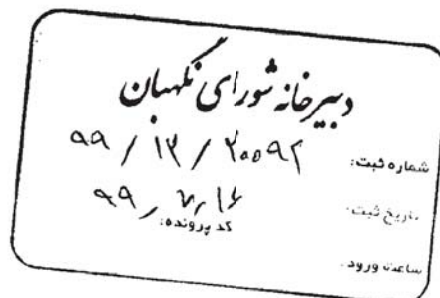 دبیرخانه شورای نگهبان
شماره ثبت: ۹۹/۱۲/۲۰۰۹۲
تاریخ ثبت: ۹۹/۷/۱۶
کد پرونده:
ساعت ورود: